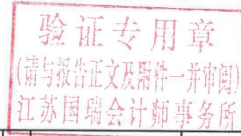 验证专用章
(请与报告正文及附件一并审阅)
江苏国瑞会计师事务所